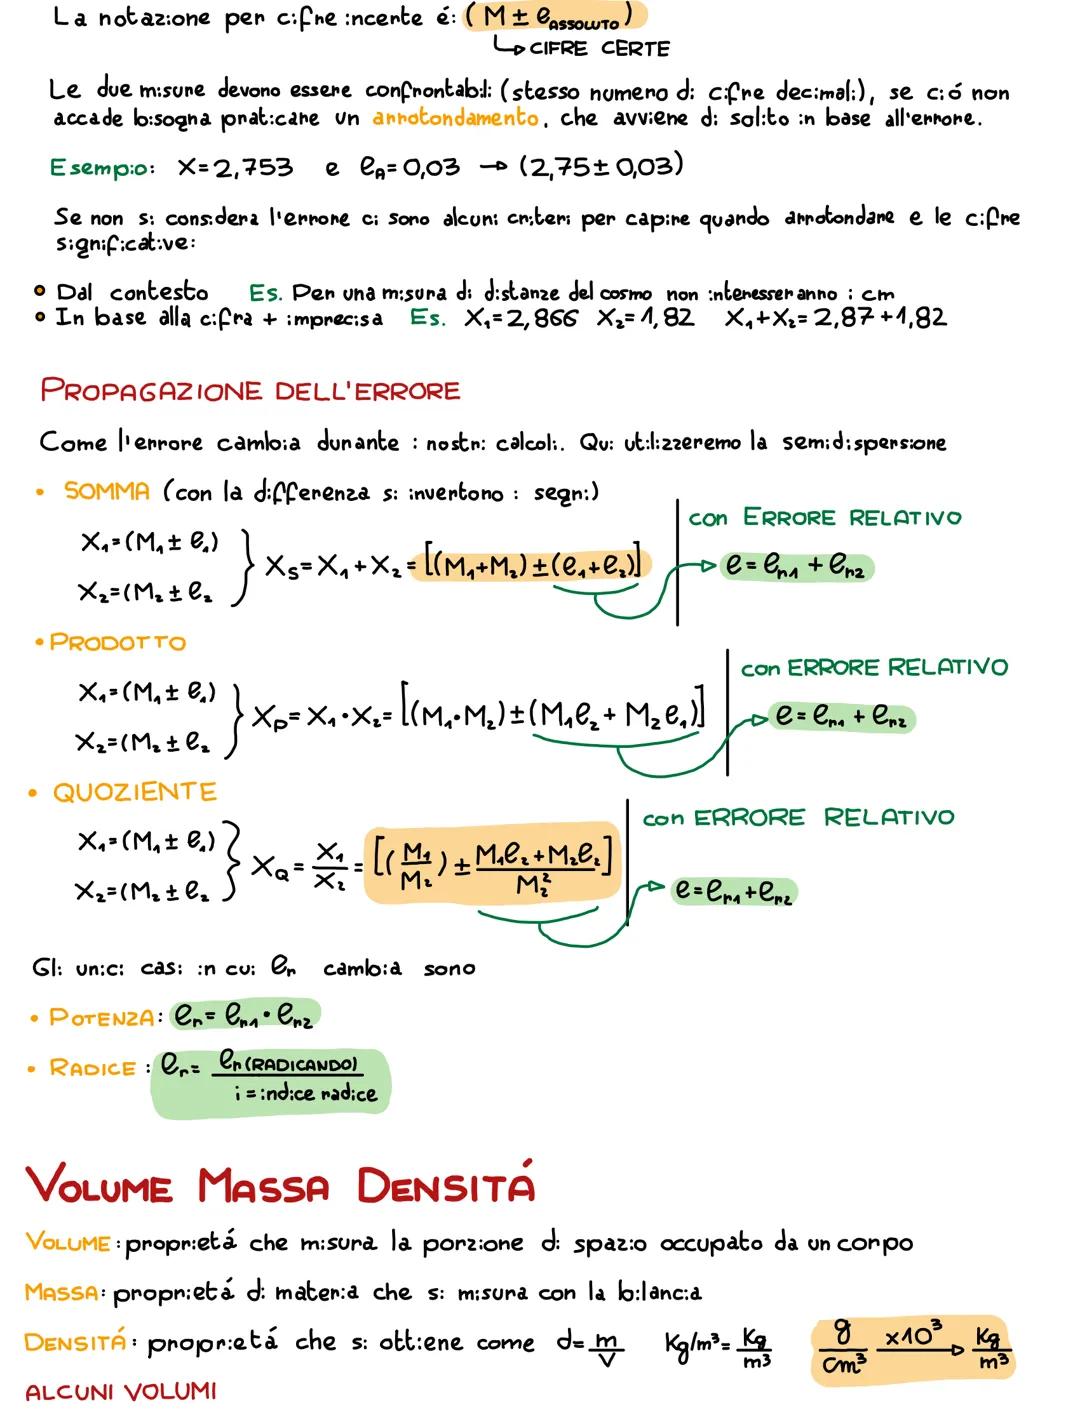 La notazione per cifre incerte é: ( M ± e ASSOLUTO )
↳ CIFRE CERTE
Le due misure devono essere confrontabili (stesso numero di cifre decimali), se ció non
accade bisogna praticare un arrotondamento, che avviene di solito in base all'errore.
Esempio: X=2,753 e eA=0,03 → (2,75±0,03)
Se non si considera l'errore ci sono alcuni criteri per capire quando arrotondare e le cifre
significative:
• Dal contesto Es. Per una misura di distanze del cosmo non interesseranno i cm
• In base alla cifra + imprecisa Es. X₁=2,866 X₂=1,82 X₁+X₂=2,87+1,82
PROPAGAZIONE DELL'ERRORE
Come l'errore cambia durante i nostri calcoli. Qui utilizzeremo la semidispersione
• SOMMA (con la differenza si invertono i segni)
X₁=(M₁±e₁)
X₂=(M₂±e₂
} Xs=X₁+X₂=[(M₁+M₂)±(e₁+e₂)]
con ERRORE RELATIVO
e=er1+er2
• PRODOTTO
X₁=(M₁±e₁)
X₂=(M₂±e₂
} Xp=X₁·X₂=[(M₁·M₂)±(M₁e₂+M₂e₁)]
con ERRORE RELATIVO
e=er1+er2
• QUOZIENTE
X₁=(M₁±e₁)
X₂=(M₂±e₂
} XQ=X₁/X₂=[(M₁/M₂)±(M₁e₂+M₂e₂)/M₂²]
con ERRORE RELATIVO
e=er1+er2
Gli unici casi in cui er cambia sono
• POTENZA: er=er1·er2
• RADICE: er= er(RADICANDO)
i=indice radice
VOLUME MASSA DENSITÁ
VOLUME: proprietá che misura la porzione di spazio occupato da un corpo
MASSA: proprietá di materia che si misura con la bilancia
DENSITÁ: proprietá che si ottiene come d=m/V Kg/m³=Kg/m³ g/cm³ x10³→ Kg/m³
ALCUNI VOLUMI